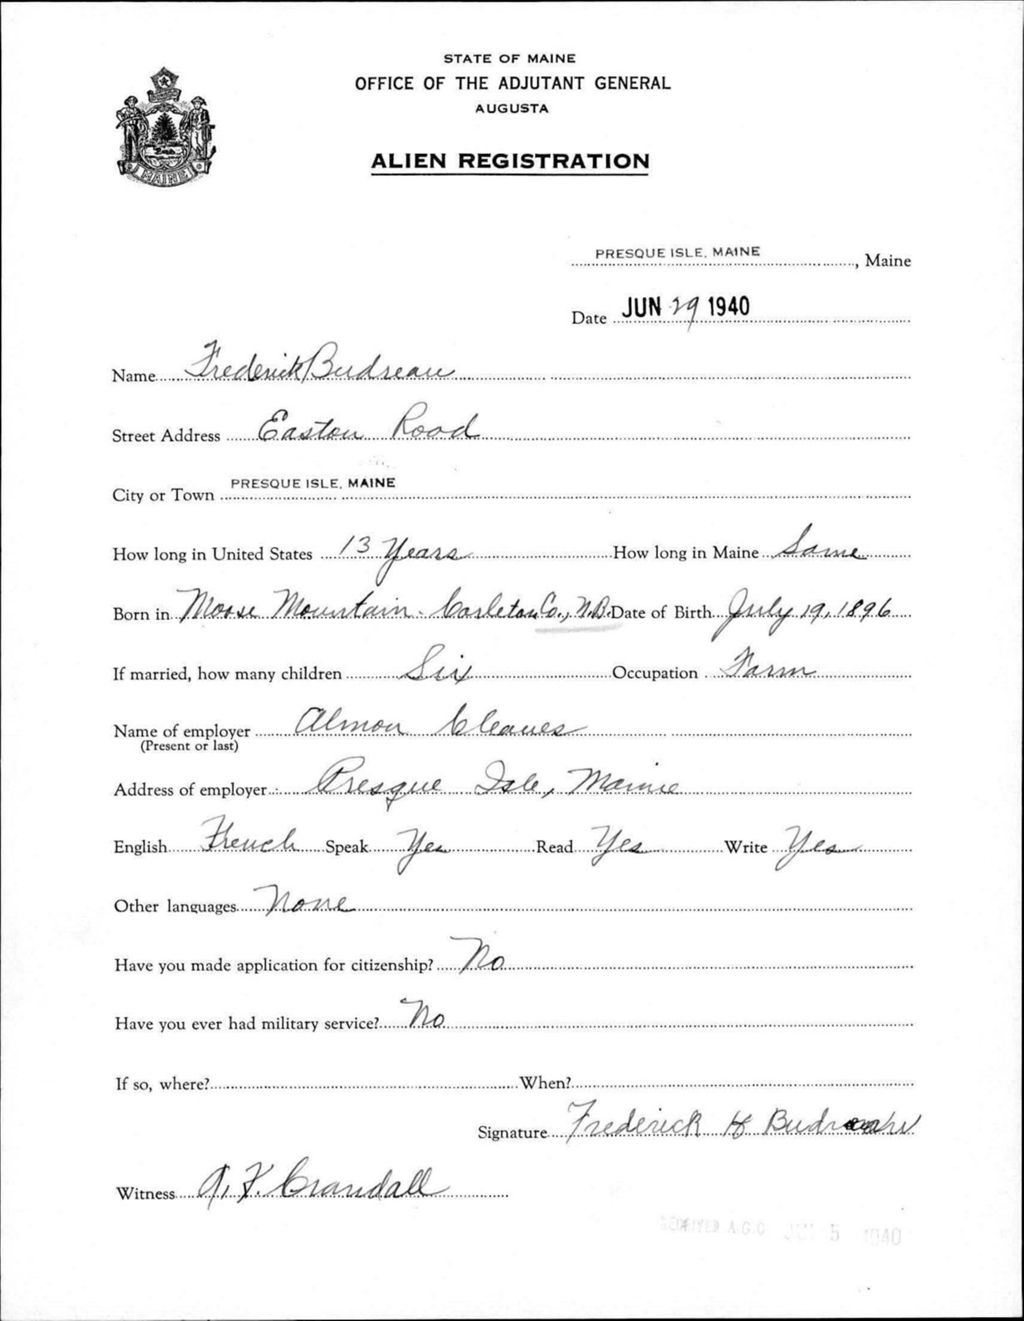 STATE OF MAINE
OFFICE OF THE ADJUTANT GENERAL
AUGUSTA
ALIEN REGISTRATION
MAINE
PRESQUE ISLE, MAINE, Maine
Date JUN 29 1940
Name Frederick Budreau
Street Address Easton Road
City or Town PRESQUE ISLE, MAINE
How long in United States 13 Years How long in Maine Same
Born in Moose Mountain Carleton Co., N.B. Date of Birth July 19, 1896
If married, how many children Six Occupation Farm
Name of employer Almon Cleaves
(Present or last)
Address of employer Presque Isle, Maine
English French Speak Yes Read Yes Write Yes
Other languages None
Have you made application for citizenship? No
Have you ever had military service? No
If so, where? When?
Signature Frederick H
Witness A. F. Crandall
A.G.O 5 1940